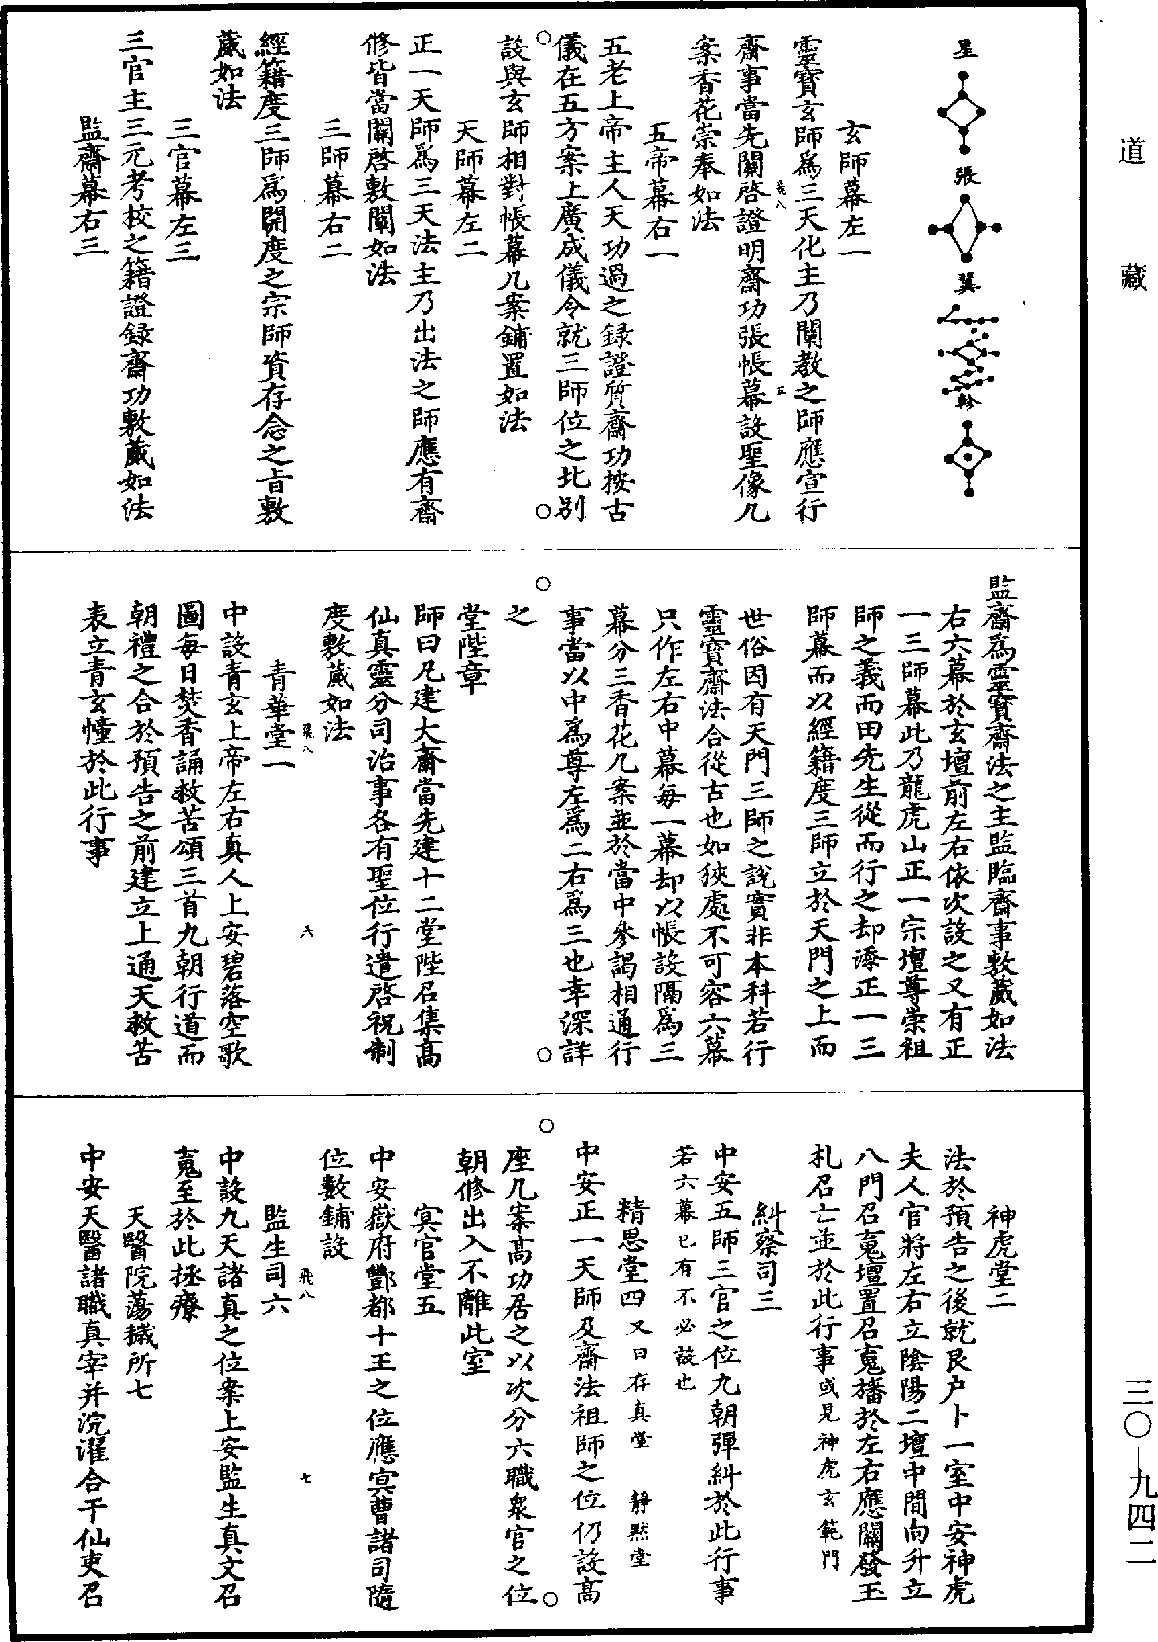 道藏
星
張
翼
軫
玄師幕左一
靈寶玄師為三天化主乃闡教之師應宣行
齋事當先關啓證明齋功張帳幕設聖像几
案香花崇奉如法
五帝幕右一
五老上帝主人天功過之録證質齋功按古
儀在五方案上廣成儀令就三師位之北別
設與玄師相對帳幕几案鋪置如法
天師幕左二
正一天師為三天法主乃出法之師應有齋
修皆當關啓敷闡如法
三師幕右二
經籍度三師為開度之宗師資存念之旨敷
蕆如法
三官幕左三
三官主三元考校之籍證録齋功敷蕆如法
監齋幕右三
監齋為靈寶齋法之主監臨齋事敷蕆如法
右六幕於玄壇前左右依次設之又有正
一三師幕此乃龍虎山正一宗壇尊崇祖
師之義而田先生從而行之却添正一三
師幕而以經籍度三師立於天門之上而
世俗因有天門三師之說實非本科若行
靈寶齋法合從古也如狹處不可容六幕
只作左右中幕每一幕却以帳設隔為三
幕分三香花几案並於當中參謁相通行
事當以中為尊左為二右為三也幸深詳
之
堂陛章
師曰凡建大齋當先建十二堂陛召集高
仙真靈分司治事各有聖位行遣啓祝制
度敷蕆如法
青華堂一
中設青玄上帝左右真人上安碧落空歌
圖每日焚香誦救苦頌三首九朝行道而
朝禮之合於預告之前建立上通天救苦
表立青玄幢於此行事
神虎堂二
法於預告之後就艮戶卜一室中安神虎
夫人官將左右立陰陽二壇中間向升立
八門召䰟壇置召䰟旛於左右應關發玉
札召亡並於此行事或見神虎玄範門
糾察司三
中安五師三官之位九朝彈糾於此行事
若六幕已有不必設也
精思堂四 又曰存真堂 靜默堂
中安正一天師及齋法祖師之位仍設高
座几案高功居之以次分六職衆官之位
朝修出入不離此室
冥官堂五
中安嶽府酆都十王之位應冥曹諸司隨
位數鋪設
監生司六
中設九天諸真之位案上安監生真文召
䰟至於此拯療
天醫院蕩穢所七
中安天醫諸職真宰并浣濯合干仙吏召
三〇—九四二